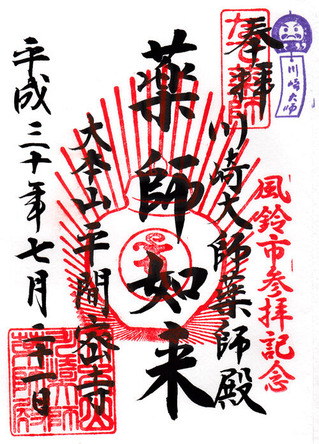 川崎大師
奉拝
風鈴市参拝記念
川崎大師薬師殿
薬師如来
大本山平間寺
平成三十年七月二十一日